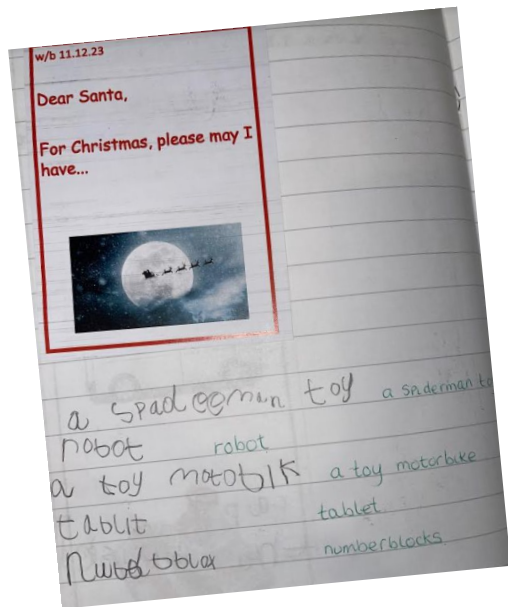 w/b 11.12.23
Dear Santa,
For Christmas, please may I
have...
a spadeeman toy a spiderman to
robot robot
a toy motobik a toy motorbike
tablit tablet
numberblocks